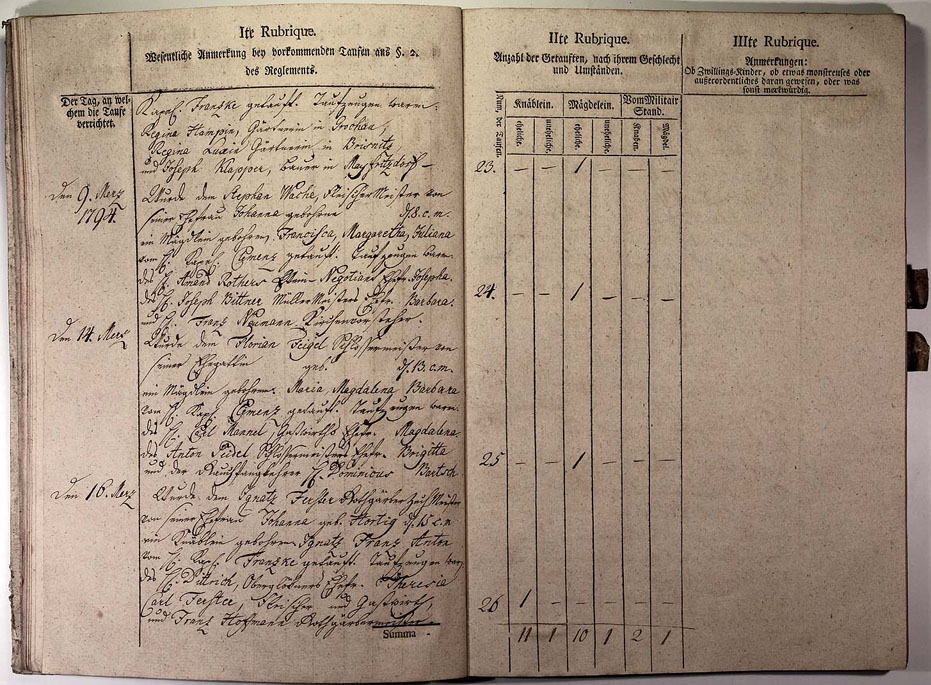 Ite Rubrique.
Wesentliche Anmerkung bey vorkommenden Taufen aus §. 2.
des Reglements.
Der Tag, an wel-
chem die Taufe
verrichtet.
Kapel. Franske getauft. Taufzeugen waren:
Regina Hampin, Gärtnerin in Frochau,
Regina Gärtnerin in Brisnitz,
und Joseph Klapper, Bauer in
den 9. Merz
1794.
Wurde dem Stephan Wache, Fleischer Meister von
seiner Ehefrau Johanna gebohrne d. 8. c. m.
ein Mägdlein gebohren, Francisca, Margaretha, Juliana
vom H. Kapel. getauft. Taufzeugen waren
des H. Amand Rothers Negotiant Ehefr. Josepha.
des H. Joseph Bittner Müller Meisters Ehefr. Barbara.
und H. Franz Neumann Kirchenvorsteher.
den 14. Merz
Wurde dem Florian Feigel Schlossermeister von
seiner Ehegattin geb. d. 13. c. m.
ein Mägdlein gebohren. Maria, Magdalena Barbara
vom H. Kapl. getauft. Taufzeugen waren
des H. Carl Mannel Gastwirths Ehefr. Magdalena.
des Anton Seidel Schlossermeisters Ehefr. Brigitta
und der Rauchfangkehrer H. Dominicus Bartsch
den 16. Merz
Wurde dem Ignatz Ferster Rothgärber Meister
von seiner Ehefrau Johanna geb. Hortig d. 15 c. m
ein Knäblein gebohren Ignatz Franz Anton
vom H. Kap. Franske getauft. Taufzeugen war.
des H. Dittrich, Oberglöckners Ehefr. Theresia
Carl Ferster, Fleischer und Gastwirth,
und Franz Hoffmann Rothgärbermeister.
Summa
IIte Rubrique.
Anzahl der Getauften, nach ihrem Geschlecht
und Umständen.
Num. der Taufen.
Knäblein. Mägdelein. Vom Militair
Stand.
eheliche. uneheliche. eheliche. uneheliche. Knaben. Mägdel.
23. – – 1 – – –
24. – – 1 – – –
25 – – 1 – – –
26 1 – – – – –
11 1 10 1 2 1
IIIte Rubrique.
Anmerkungen:
Ob Zwillings-Kinder, ob etwas monstreuses oder
außerordentliches daran gewesen, oder was
sonst merkwürdig.